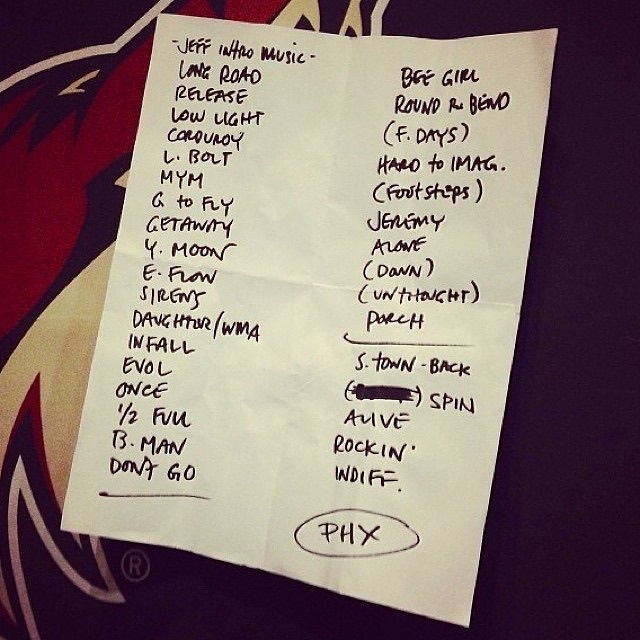 -JEFF INTRO MUSIC-
LONG ROAD
RELEASE
LOW LIGHT
CORDUROY
L. BOLT
MYM
G. TO FLY
GETAWAY
Y. MOON
E. FLOW
SIRENS
DAUGHTER/WMA
INFALL
EVOL
ONCE
1/2 FULL
B. MAN
DON'T GO
BEE GIRL
ROUND THE BEND
(F. DAYS)
HARD TO IMAG.
(FOOTSTEPS)
JEREMY
ALONE
(DOWN)
(UNTHOUGHT)
PORCH
S. TOWN - BACK
( ) SPIN
ALIVE
ROCKIN'
INDIFF.
PHX
®